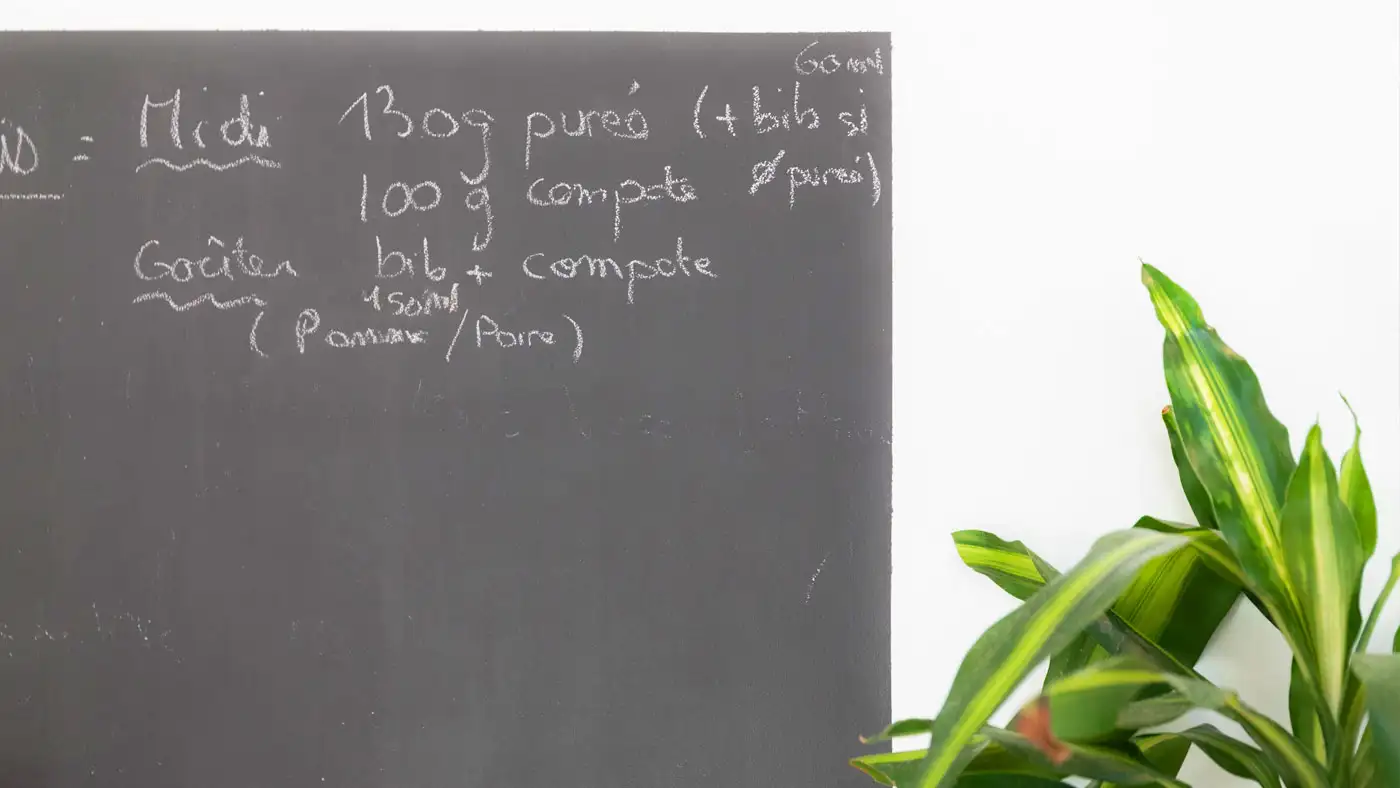 60ml
= Midi 130g pureé (+ bib si
100 g compote ø pureé)
Goûter bib + compote
150ml
(Pomme / Poire)